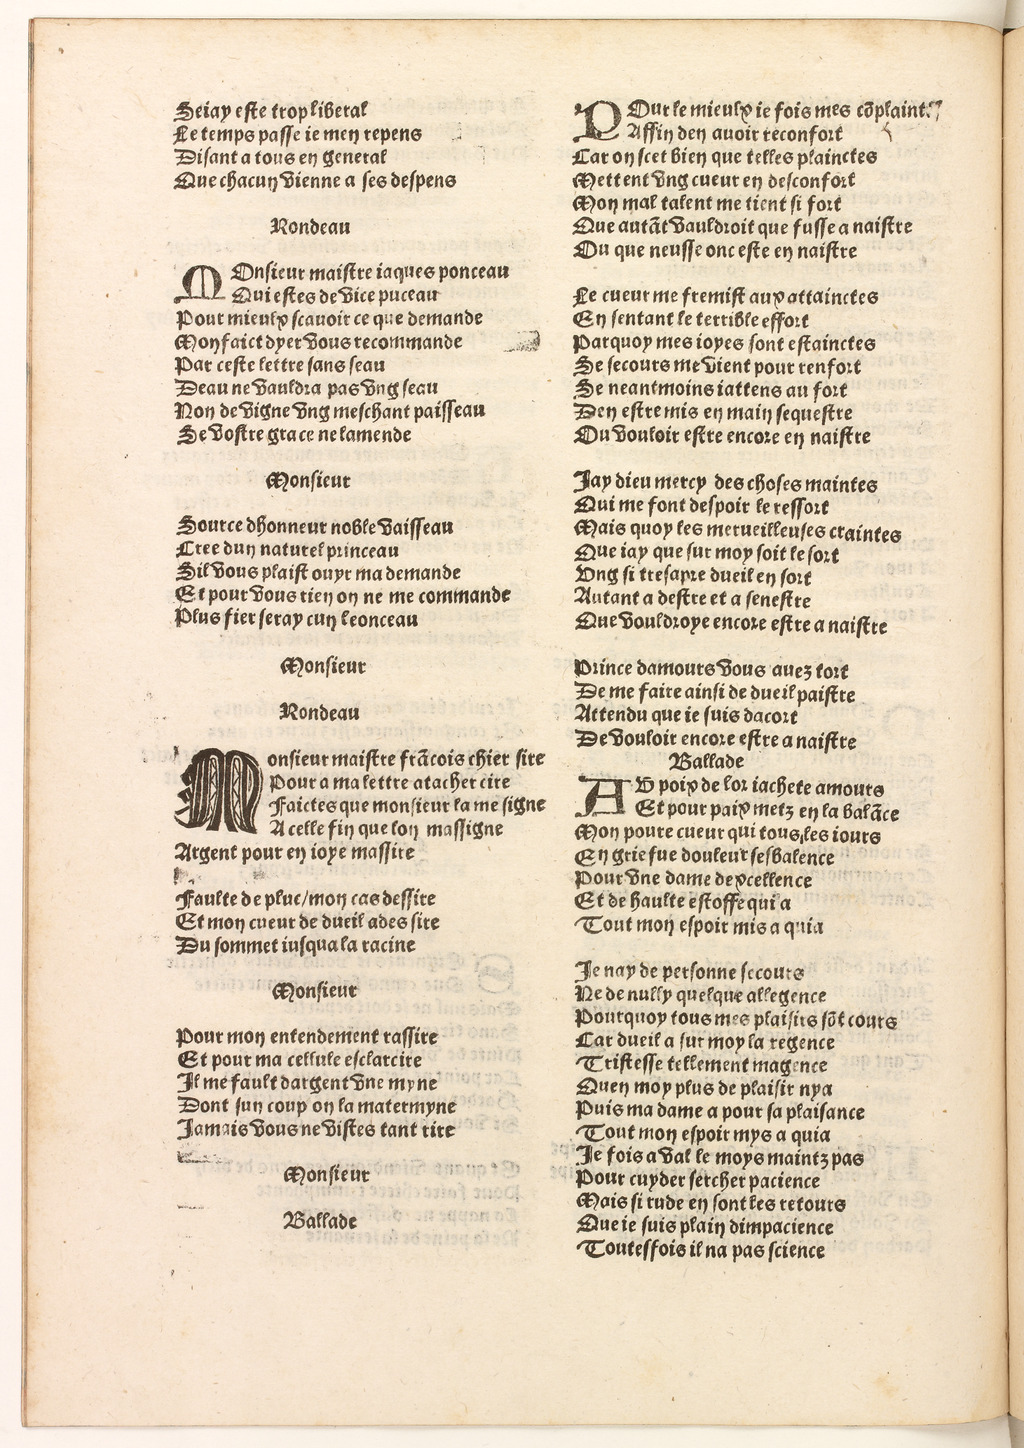 Se iay este trop liberal
Le temps passe ie men repens
Disant a tous en general
Que chacun vienne a ses despens
Rondeau
MOnsieur maistre iaques ponceau
Qui estes de vice puceau
Pour mieulx scauoir ce que demande
Mon faict dyer vous recommande
Par ceste lettre sans seau
Deau ne vauldra pas vng seau
Non de vigne vng meschant paisseau
Se vostre grace ne lamende
Monsieur
Source dhonneur noble vaisseau
Cree dun naturel princeau
Sil vous plaist ouyr ma demande
Et pour vous rien on ne me commande
Plus fier seray cun leonceau
Monsieur
Rondeau
Monsieur maistre frācois chier sire
Pour a ma lettre atacher cire
Faictes que monsieur la me signe
A celle fin que lon massigne
Argent pour en ioye massire
Faulte de pluc/mon cas dessire
Et mon cueur de dueil ades sire
Du sommet iusqua la racine
Monsieur
Pour mon entendement rassire
Et pour ma cellule esclarcire
Il me fault dargent vne myne
Dont sun coup on la matermyne
Jamais vous ne vistes tant rire
Monsieur
Ballade
POur le mieulx ie fois mes cōplaint
Affin den auoir reconfort
Car on scet bien que telles plainctes
Mettent vng cueur en desconfort
Mon mal talent me tient si fort
Que autāt vauldroit que fusse a naistre
Ou que neusse onc este en naistre
Le cueur me fremist aux attainctes
En sentant le terrible effort
Parquoy mes ioyes sont estainctes
Se secours me vient pour renfort
Se neantmoins iattens au fort
Den estre mis en main sequestre
Ou vouloir estre encore en naistre
Jay dieu mercy des choses maintes
Qui me font despoir le ressort
Mais quoy les merueilleuses craintes
Que iay que sur moy soit le sort
Vng si tresapre dueil en sort
Autant a destre et a senestre
Que vouldroye encore estre a naistre
Prince damours vous auez tort
De me faire ainsi de dueil paistre
Attendu que ie suis dacort
De vouloir encore estre a naistre
Ballade
AV poix de lor iachete amours
Et pour paix metz en la balāce
Mon poure cueur qui tous les iours
En griefue douleur se sbalence
Pour vne dame dexcellence
Et de haulte estoffe qui a
Tout mon espoir mis a quia
Je nay de personne secours
Ne de nully quelque allegence
Pourquoy tous mes plaisirs sōt cours
Car dueil a sur moy la regence
Tristesse tellement magence
Quen moy plus de plaisir nya
Puis ma dame a pour sa plaisance
Tout mon espoir mys a quia
Je fois a val le moys maintz pas
Pour cuyder sercher pacience
Mais si rude en sont les retours
Que ie suis plain dimpacience
Toutesfois il na pas science